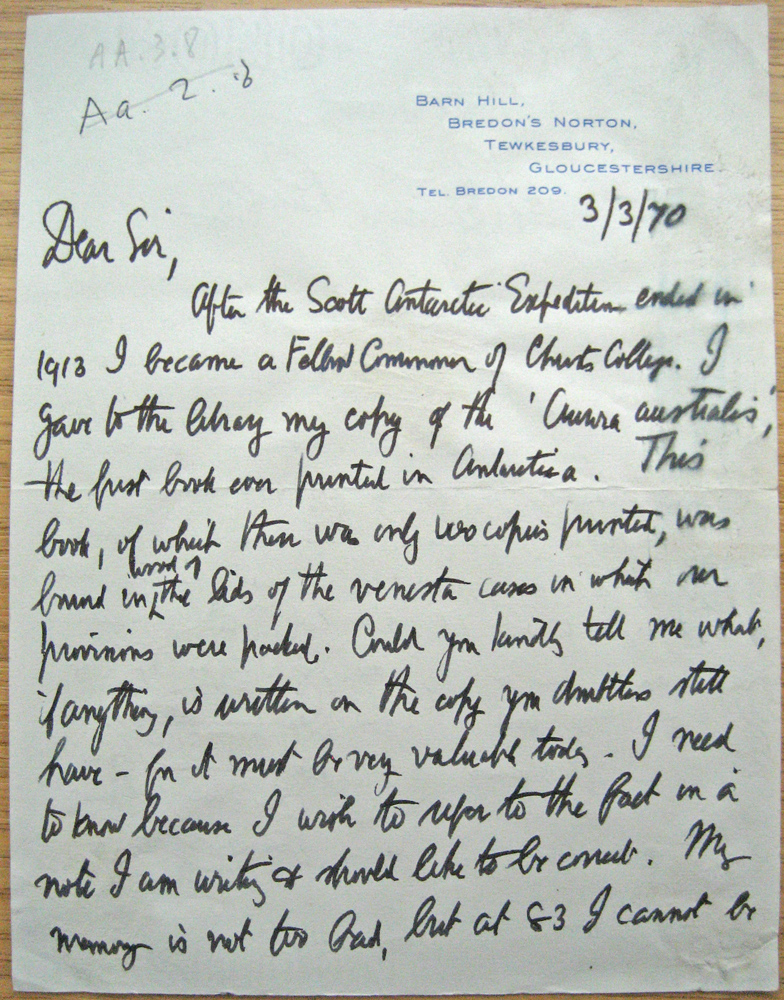 AA.3.8
Aa. 2. 8
BARN HILL,
BREDON'S NORTON,
TEWKESBURY,
GLOUCESTERSHIRE
TEL. BREDON 209.
3/3/70
Dear Sir,
After the Scott Antarctic Expedition ended in
1913 I became a Fellow Commoner of Christs College. I
gave to the library my copy of the 'Aurora australis',
the first book ever printed in Antarctica. This
book, of which there was only 100 copies printed, was
bound in the wood of
the lids of the venesta cases in which our
provisions were packed. Could you kindly tell me what,
if anything, is written on the copy you doubtless still
have - for it must be very valuable today. I need
to know because I wish to refer to the fact in a
note I am writing & should like to be correct. My
memory is not too bad, but at 83 I cannot be